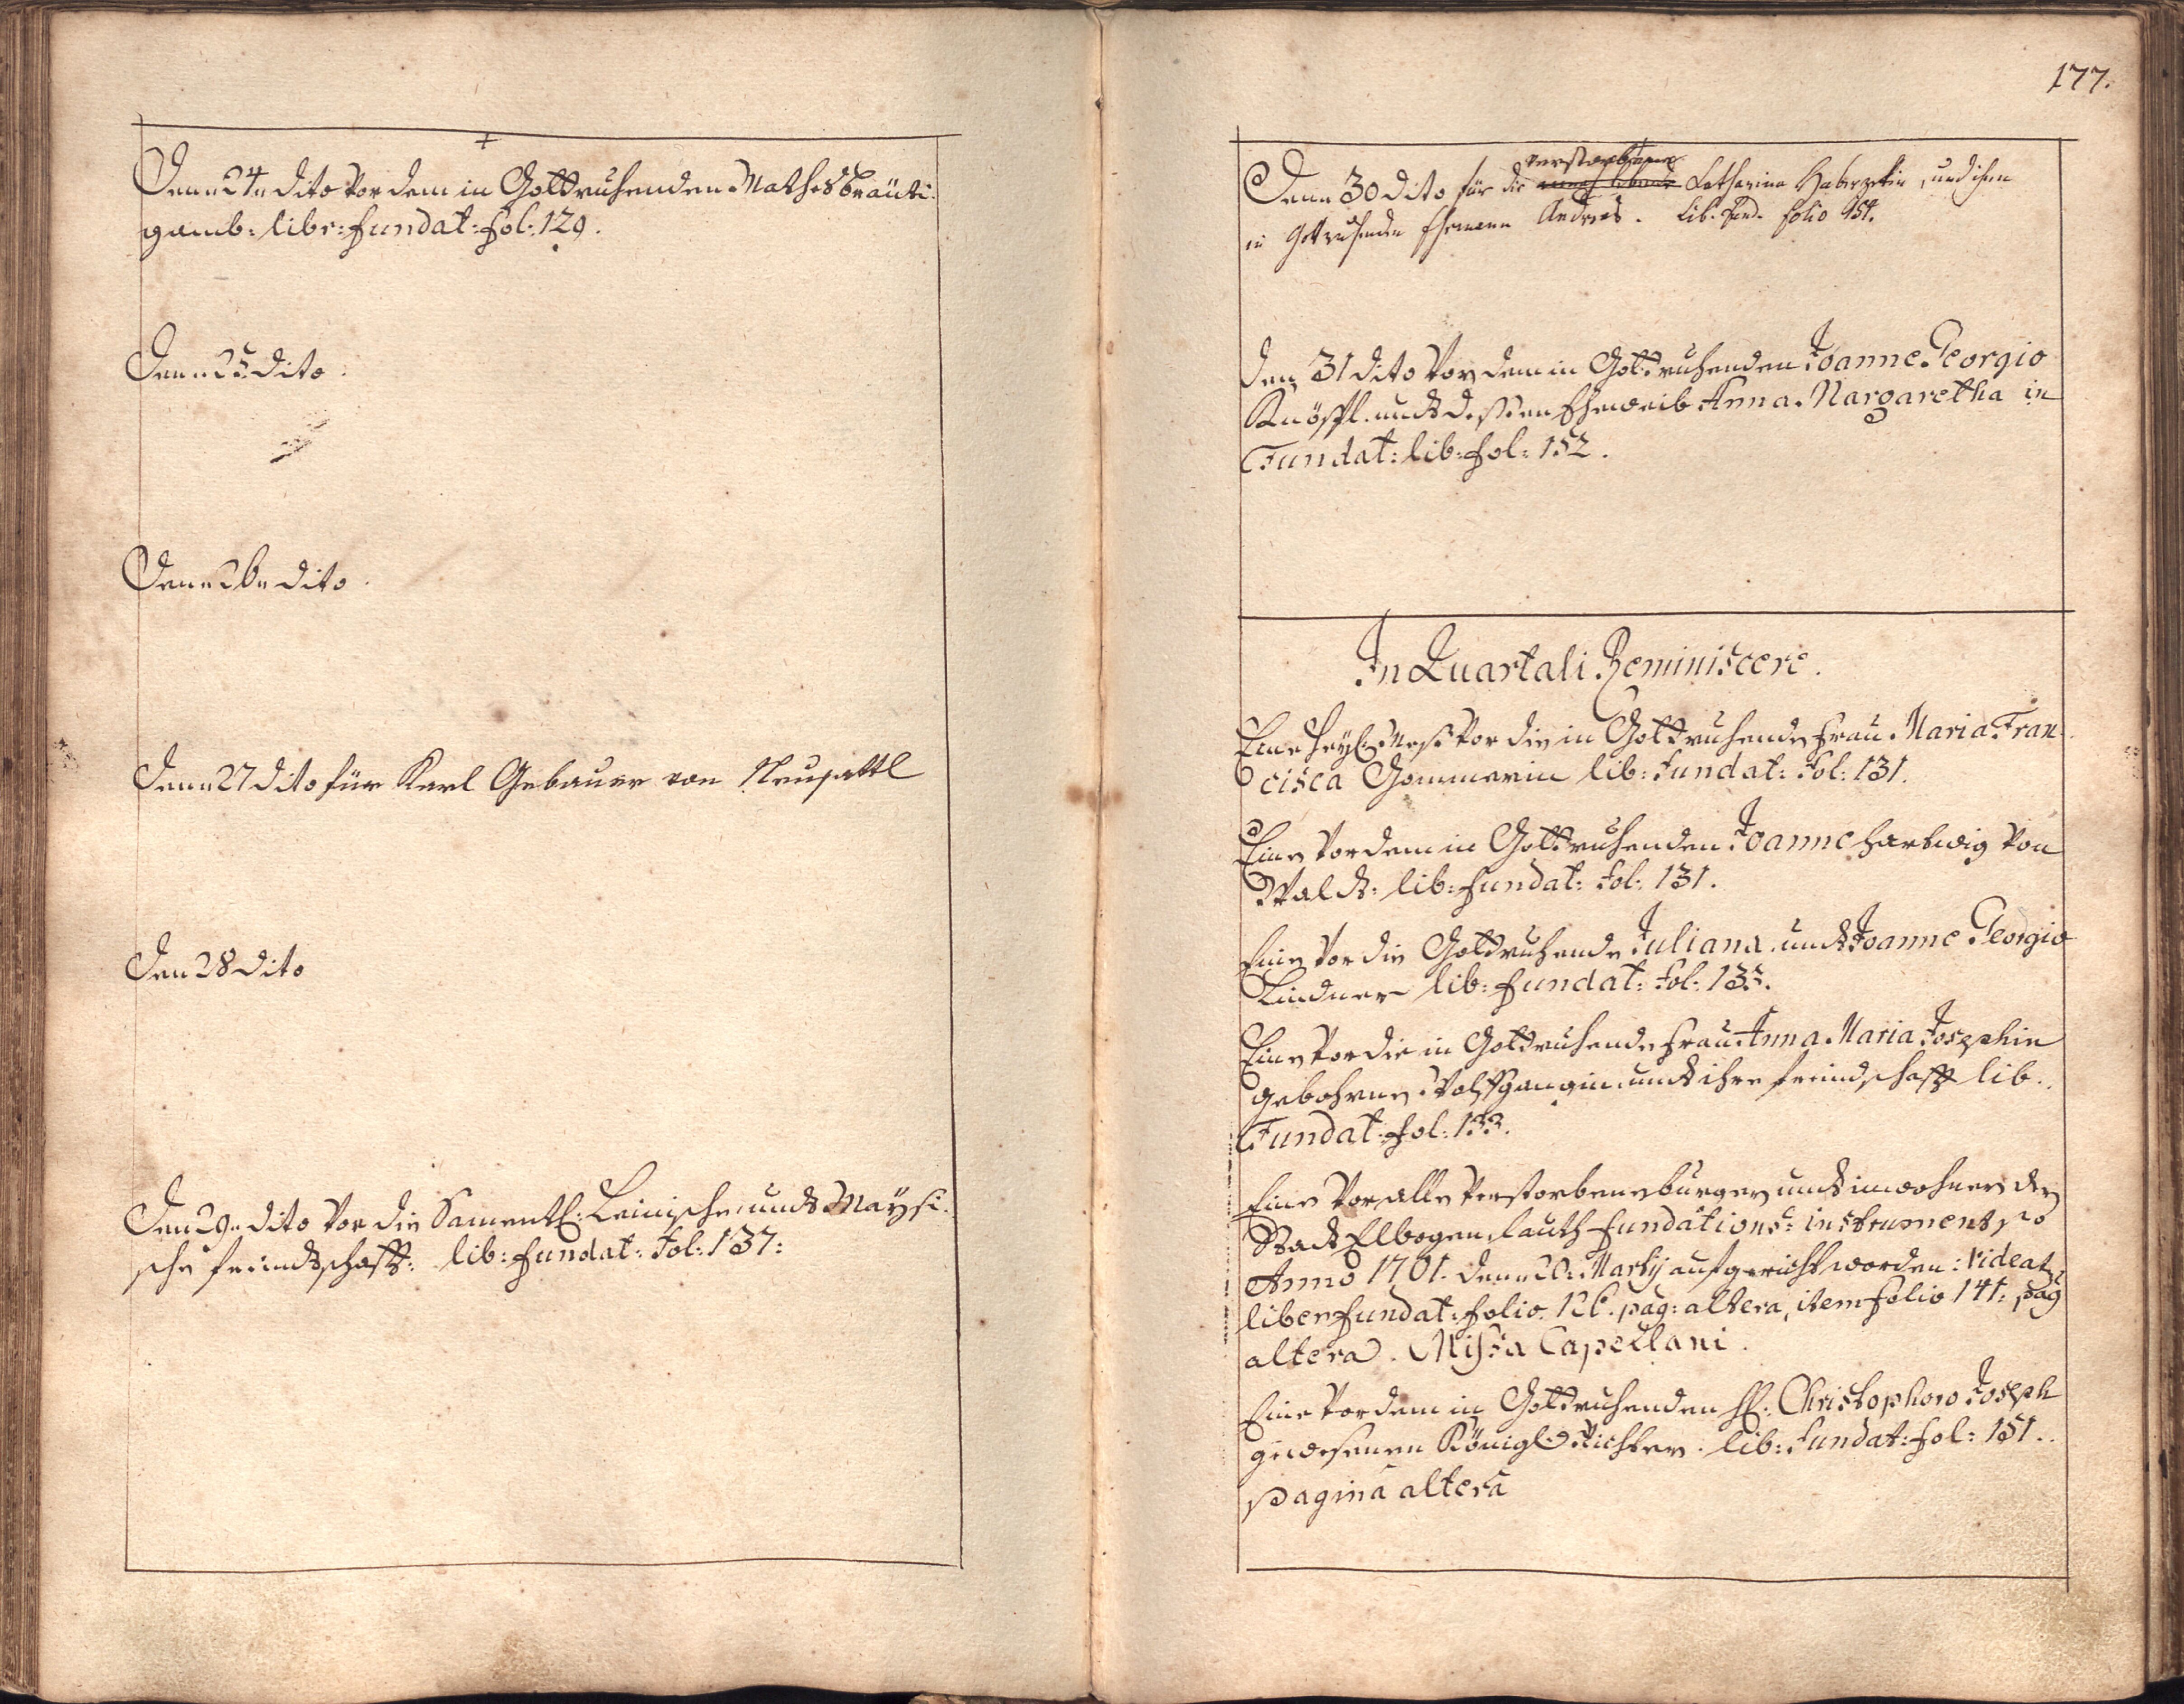 Denn 24n dito vor dem in Gott ruhenden Mathes Bräuti-
gamb: libr: fundat: fol: 129.
Denn 25 dito.
Denn 26n dito.
Denn 27 dito für Karl Gebauer von Neusattl
Den 28 dito
Den 29n dito vor die Samentl: Leinische, undt Maÿsi-
sche freindtschafft: lib: fundat: fol: 137:
177.
verstorbene
Denn 30 dito für die noch lebende Catharina Haberzetlin, und ihren
in Gott ruhenden Ehemann Andreas. Lib. fund. folio 154.
Den 31 dito vor dem in Gott ruhenden Joanne Georgio
Knöspl. undt dessen Eheweib Anna Margaretha in
Fundat: lib: fol: 152.
In Quartali Reminiscere.
Eine Heyl: Mess vor die in Gott ruhende Frau Maria Fran-
cisca Gommerin lib: fundat: fol: 131.
Eine vor dem in Gott ruhenden Joanne Hartwig von
Waldt: lib: fundat: fol: 131.
Eine vor die Gott ruhende Juliana undt Joanne Georgio
Lindner lib: fundat: fol: 133.
Eine vor die in Gott ruhende Frau Anna Maria Josephin
gebohrne Wolffgangin undt ihre freindschafft lib:
Fundat: fol: 133.
Eine vor alle verstorbene bürger undt inwohner der
Stadt Elbogen, lauth fundations: instrument, so
Anno 1701. denn 20: Martij aufgericht worden: Videat:
liber fundat: folio 126. pag: altera, item folio 141: pag
altera. Missa Capellani.
Eine vor dem in Gott ruhenden H: Christophoro Joseph
gewesenen Königl: Richter. lib: fundat: fol: 151.
pagina altera